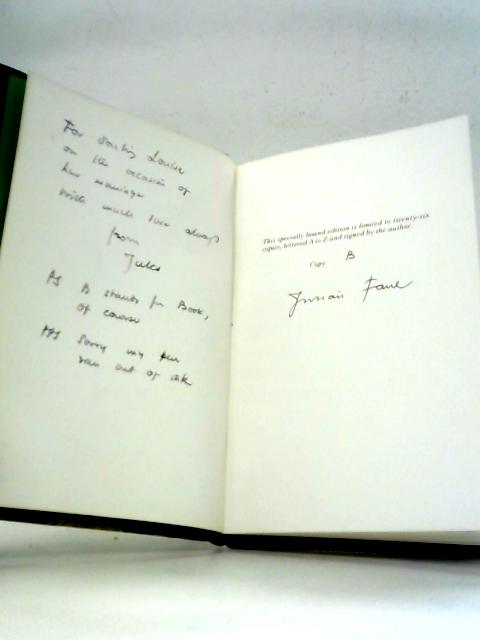 For darling Louise
on the occasion of
her marriage
with much love always
from
Jules
PS B stands for Book,
of course
PPS Sorry my pen
ran out of ink
This specially bound edition is limited to twenty-six
copies, lettered A to Z and signed by the author.
Copy B
Julian Fane